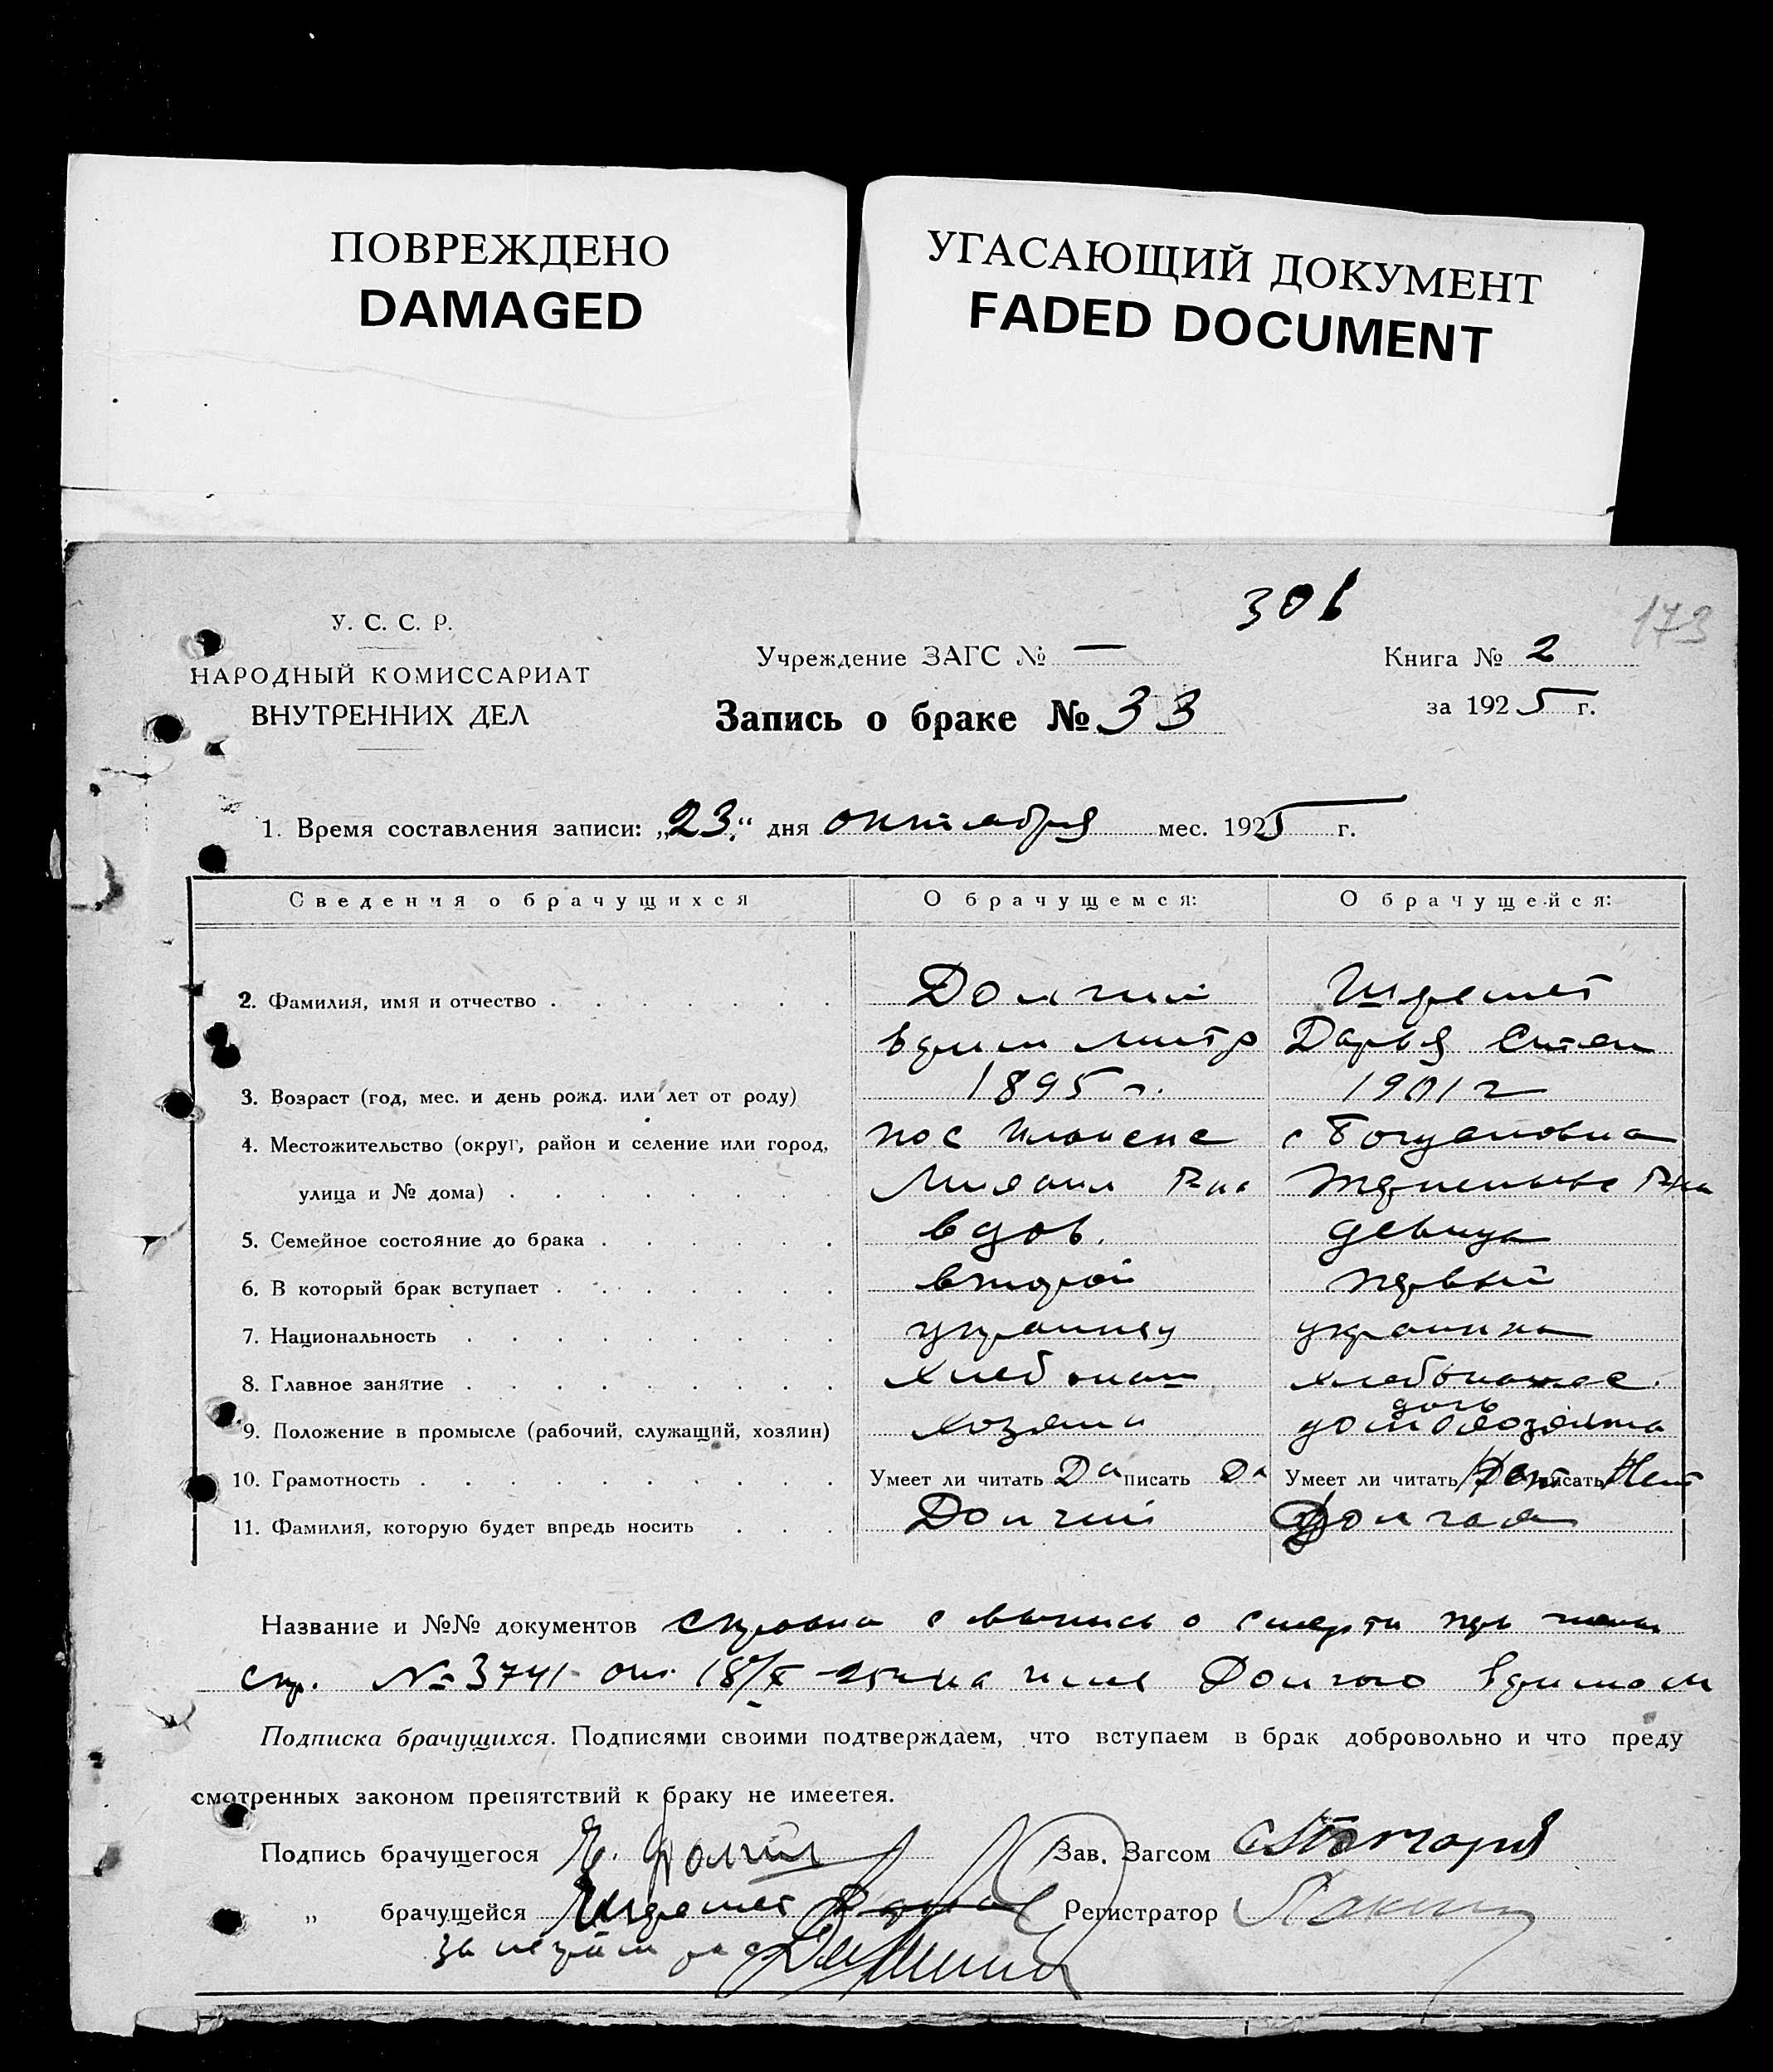 ПОВРЕЖДЕНО
DAMAGED
УГАСАЮЩИЙ ДОКУМЕНТ
FADED DOCUMENT
306
173
У. С. С. Р.
НАРОДНЫЙ КОМИССАРИАТ
ВНУТРЕННИХ ДЕЛ
Учреждение ЗАГС № —
Книга № 2
Запись о браке № 33
за 1925 г.
1. Время составления записи: „23“ дня октября мес. 1925 г.
Сведения о брачущихся О брачущемся: О брачущейся:
2. Фамилия, имя и отчество Долгий
Дарья Степ
3. Возраст (год, мес. и день рожд. или лет от роду) 1895 г. 1901 г
4. Местожительство (округ, район и селение или город, пос с Богдановка
улица и № дома) Р-на Р-на
5. Семейное состояние до брака вдов. девица
6. В который брак вступает второй первый
7. Национальность украинец украинка
8. Главное занятие хлебопаш хлебопаш
дочь
9. Положение в промысле (рабочий, служащий, хозяин) хозяин домохозяина
10. Грамотность Умеет ли читать Да писать Да Умеет ли читать Нет писать Нет
11. Фамилия, которую будет впредь носить Долгий Долгая
Название и №№ документов справка о смерти жены
спр. № 3741 от 18/X-25 г на имя Долгого
Подписка брачущихся. Подписями своими подтверждаем, что вступаем в брак добровольно и что преду
смотренных законом препятствий к браку не имеется.
Подпись брачущегося Долгий Зав. Загсом
„ брачущейся Регистратор
за неграм